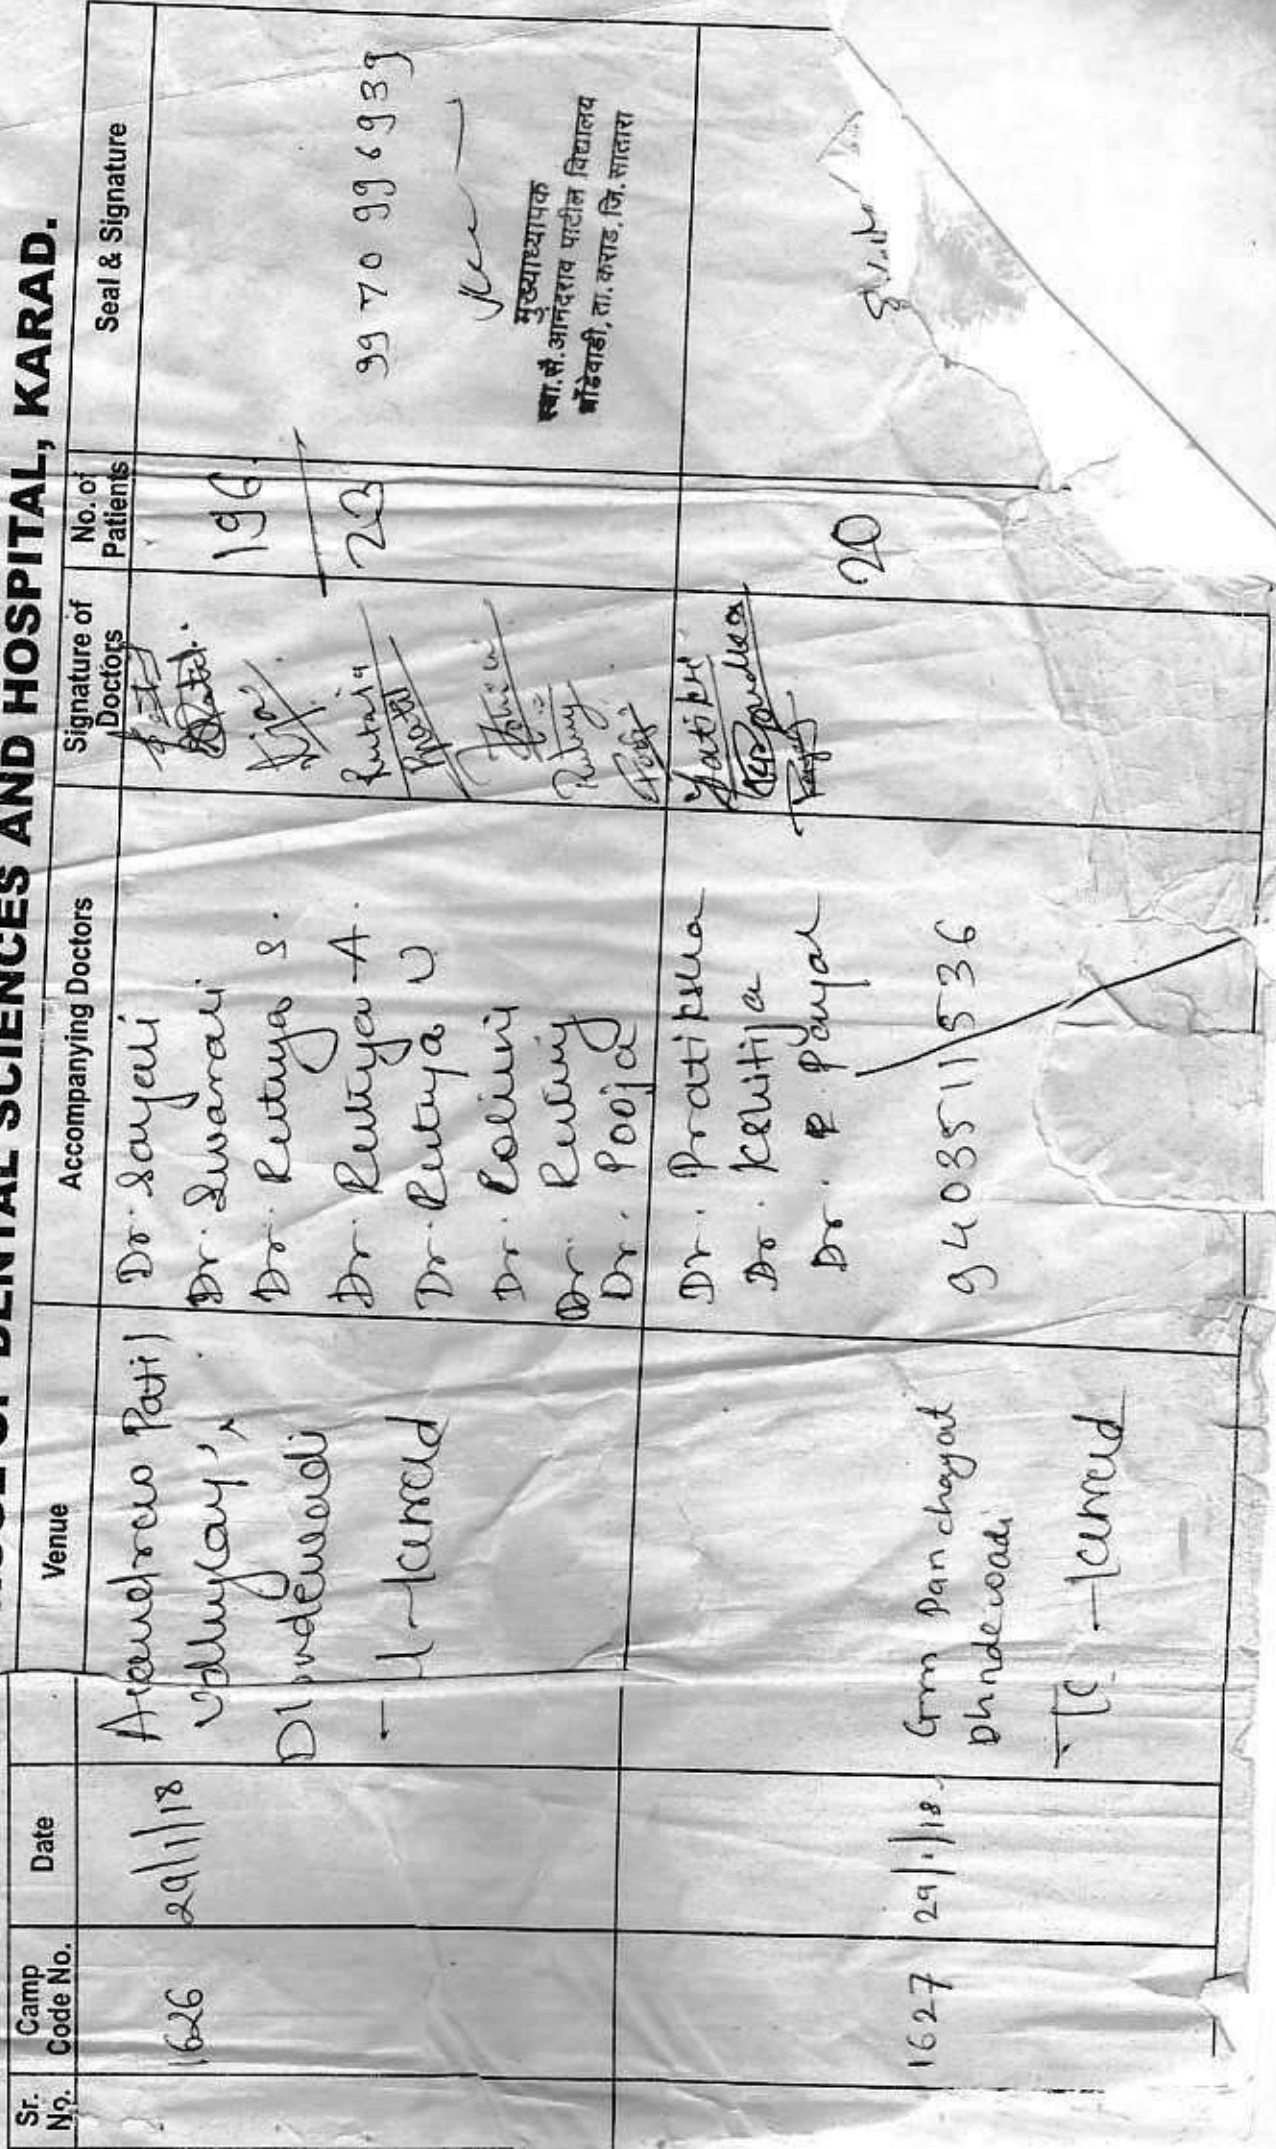 DENTAL SCIENCES AND HOSPITAL, KARAD.
Sr. No.
Camp Code No.
Date
Venue
Accompanying Doctors
Signature of Doctors
No. of Patients
Seal & Signature
1626
29/1/18
Anandrao Patil
Dhondewadi
Karad
Dr. Sayali
Dr. Swarali
Dr. Rutuja S.
Dr. Rutuja A.
Dr. Rutuja U
Dr. Rohini
Dr.
Dr. Pooja
Rutuja
196
23
9970996939
मुख्याध्यापक
स्वा.सै.आनंदराव पाटील विद्यालय
धोंडेवाडी, ता. कराड, जि. सातारा
1627
29/1/18
Grm Panchayat
Dhndewadi
Karad
Dr. Pratiksha
Dr. Kshitija
Dr. Payal
9403511536
20